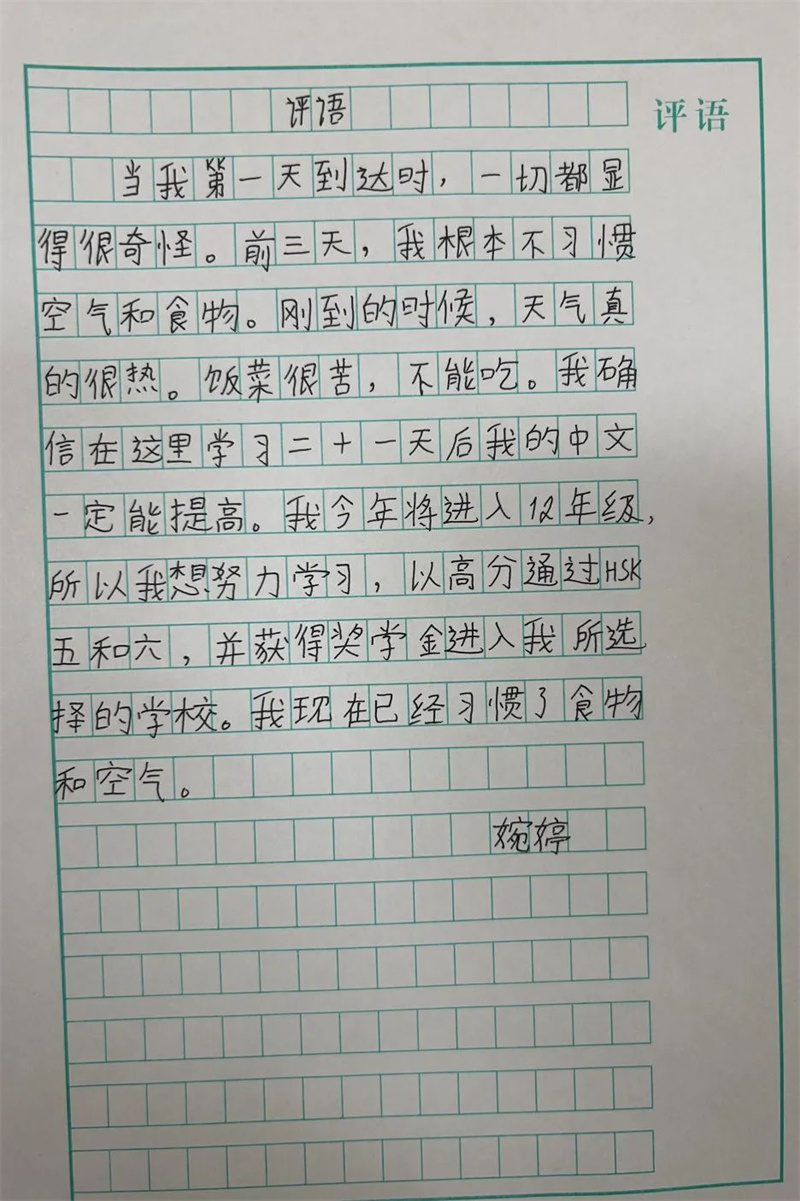 评语
评语
当我第一天到达时，一切都显
得很奇怪。前三天，我根本不习惯
空气和食物。刚到的时候，天气真
的很热。饭菜很苦，不能吃。我确
信在这里学习二十一天后我的中文
一定能提高。我今年将进入12年级，
所以我想努力学习，以高分通过HSK
五和六，并获得奖学金进入我所选
择的学校。我现在已经习惯了食物
和空气。
婉婷